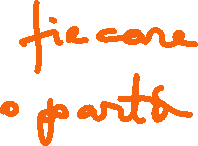 fiecare
o partă